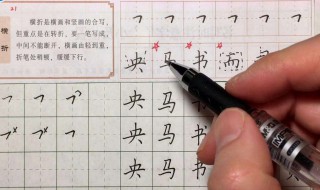 横折
横折是横画和竖画的合写，
但重点是在转折。要一笔写成，
中间不能断开。横画由轻到重，
折笔处稍顿，缓缓下行。
㇕ ㇕ ㇕ ㇕ ㇕ ㇕ ㇕
央 马 书 雨
㇕ ㇕ ㇕ 央 马 书
㇕ ㇕ ㇕ 央 马 书
央 马 书